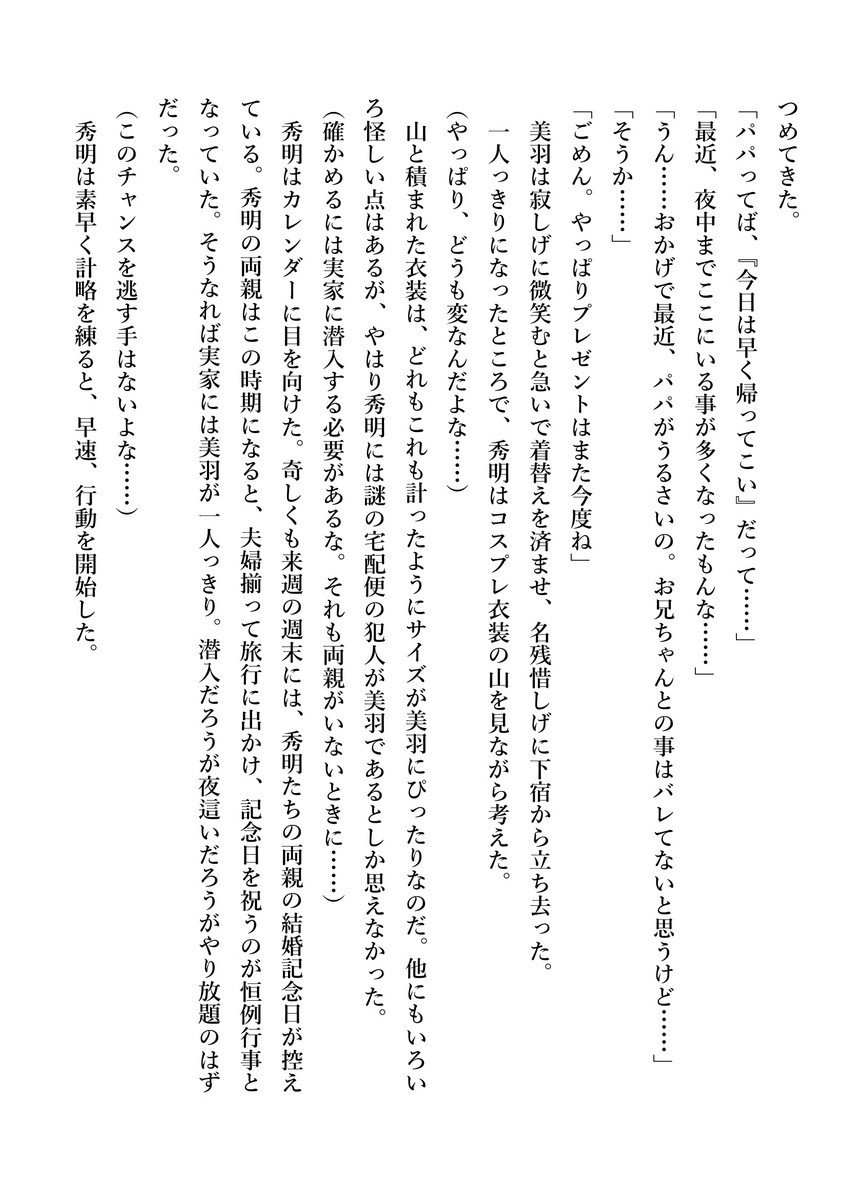 つめてきた。
「パパってば、『今日は早く帰ってこい』だって……」
「最近、夜中までここにいる事が多くなったもんな……」
「うん……おかげで最近、パパがうるさいの。お兄ちゃんとの事はバレてないと思うけど……」
「そうか……」
「ごめん。やっぱりプレゼントはまた今度ね」
　美羽は寂しげに微笑むと急いで着替えを済ませ、名残惜しげに下宿から立ち去った。
　一人っきりになったところで、秀明はコスプレ衣装の山を見ながら考えた。
（やっぱり、どうも変なんだよな……）
　山と積まれた衣装は、どれもこれも計ったようにサイズが美羽にぴったりなのだ。他にもいろい
ろ怪しい点はあるが、やはり秀明には謎の宅配便の犯人が美羽であるとしか思えなかった。
（確かめるには実家に潜入する必要があるな。それも両親がいないときに……）
　秀明はカレンダーに目を向けた。奇しくも来週の週末には、秀明たちの両親の結婚記念日が控え
ている。秀明の両親はこの時期になると、夫婦揃って旅行に出かけ、記念日を祝うのが恒例行事と
なっていた。そうなれば実家には美羽が一人っきり。潜入だろうが夜這いだろうがやり放題のはず
だった。
（このチャンスを逃す手はないよな……）
　秀明は素早く計略を練ると、早速、行動を開始した。